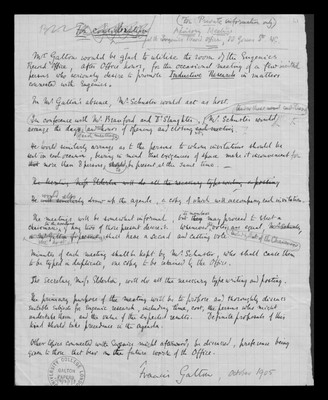 (For Private information only)
Mr. Galton would be glad to utilise the room of the Eugenics
Record Office, after Office hours, for the occasional meeting of a few
persons who seriously desire to promote Inductive Research in matters
connected with Eugenics.
In Mr Galton's absence, Mr. Schuster would act as host.
In conference with Mr. and Dr Slaughter, Mr Schuster would
arrange the days and hours of opening and closing each meeting.
He would similarly arrange as to the persons to whom invitations should be
sent on each occasion, bearing in mind that exigencies of space make it inconvenient for
more than 8 persons, to be present at the same time.
The Secretary, Miss Elderton will do all the necessary type writing & posting
He would also draw up the agenda, a copy of which will accompany each invitation.
The meetings will be somewhat informal, but they may proceed to elect a
chairman, if any two of those present desire it. Whenever votes are equal,
shall have a second and casting vote.
Minutes of each meeting shall be kept by Mr. Schuster, who shall cause them
to be typed in duplicate, one copy to be retained by the Office.
The Secretary, Miss Elderton, will do all the necessary type writing and posting.
The primary purpose of the meeting will be to propose and thoroughly discuss
suitable subjects for Eugenic research, including time, cost, the persons who might
undertake them, and the value of the expected results. Definite proposals of this
kind should take precedence in the agenda.
Other topics connected with Eugenics might afterwards be discussed, preference being
given to those that bear on the future work of the Office.
Francis Galton, October 1905
GALTON
PAPERS